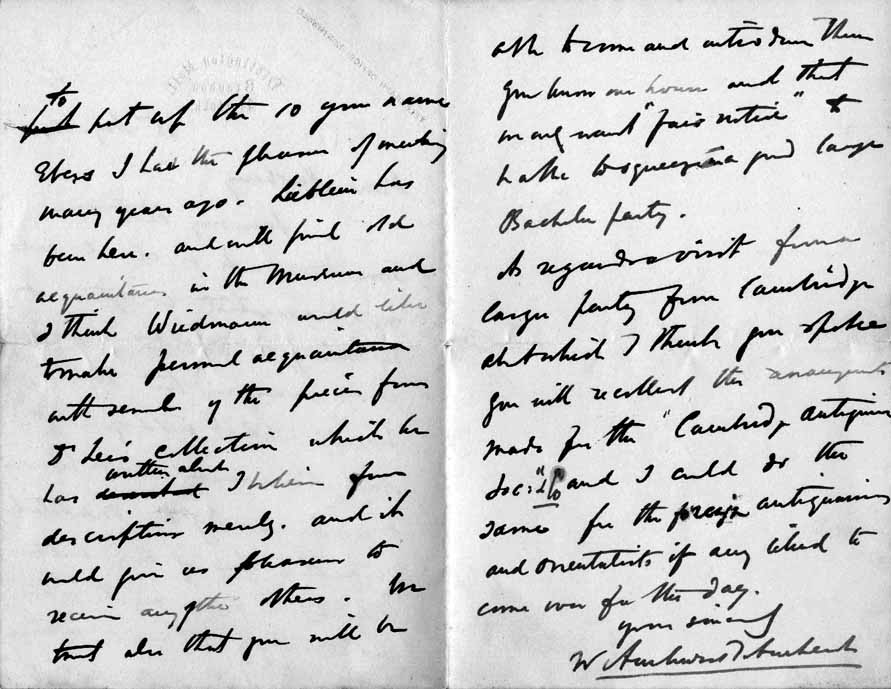 to
put up the 10 you name
Ebers I had the pleasure of meeting
many years ago. Lieblein has
been here. and will find old
acquaintances in the Museum and
I think Wiedmann would like
to make personal acquaintance
with several of the pieces from
Dr Lee's collection which he
written about
has I believe from
descriptions merely. and it
would give us pleasure to
receive any of the others. We
trust also that you will be
able to come and introduce them
you know our house and that
we only want "fair notice" to
be able to squeeze in a good large
Bachelor party.
As regards a visit from a
large party from Cambridge
about which I think you spoke
you will recollect the arrangements
made for the "Cambridge Antiquarian
Soc:" and I could do the
same for the foreign antiquarians
and Orientalists if any liked to
come over for the day.
yours sincerely
W Amhurst T Amherst